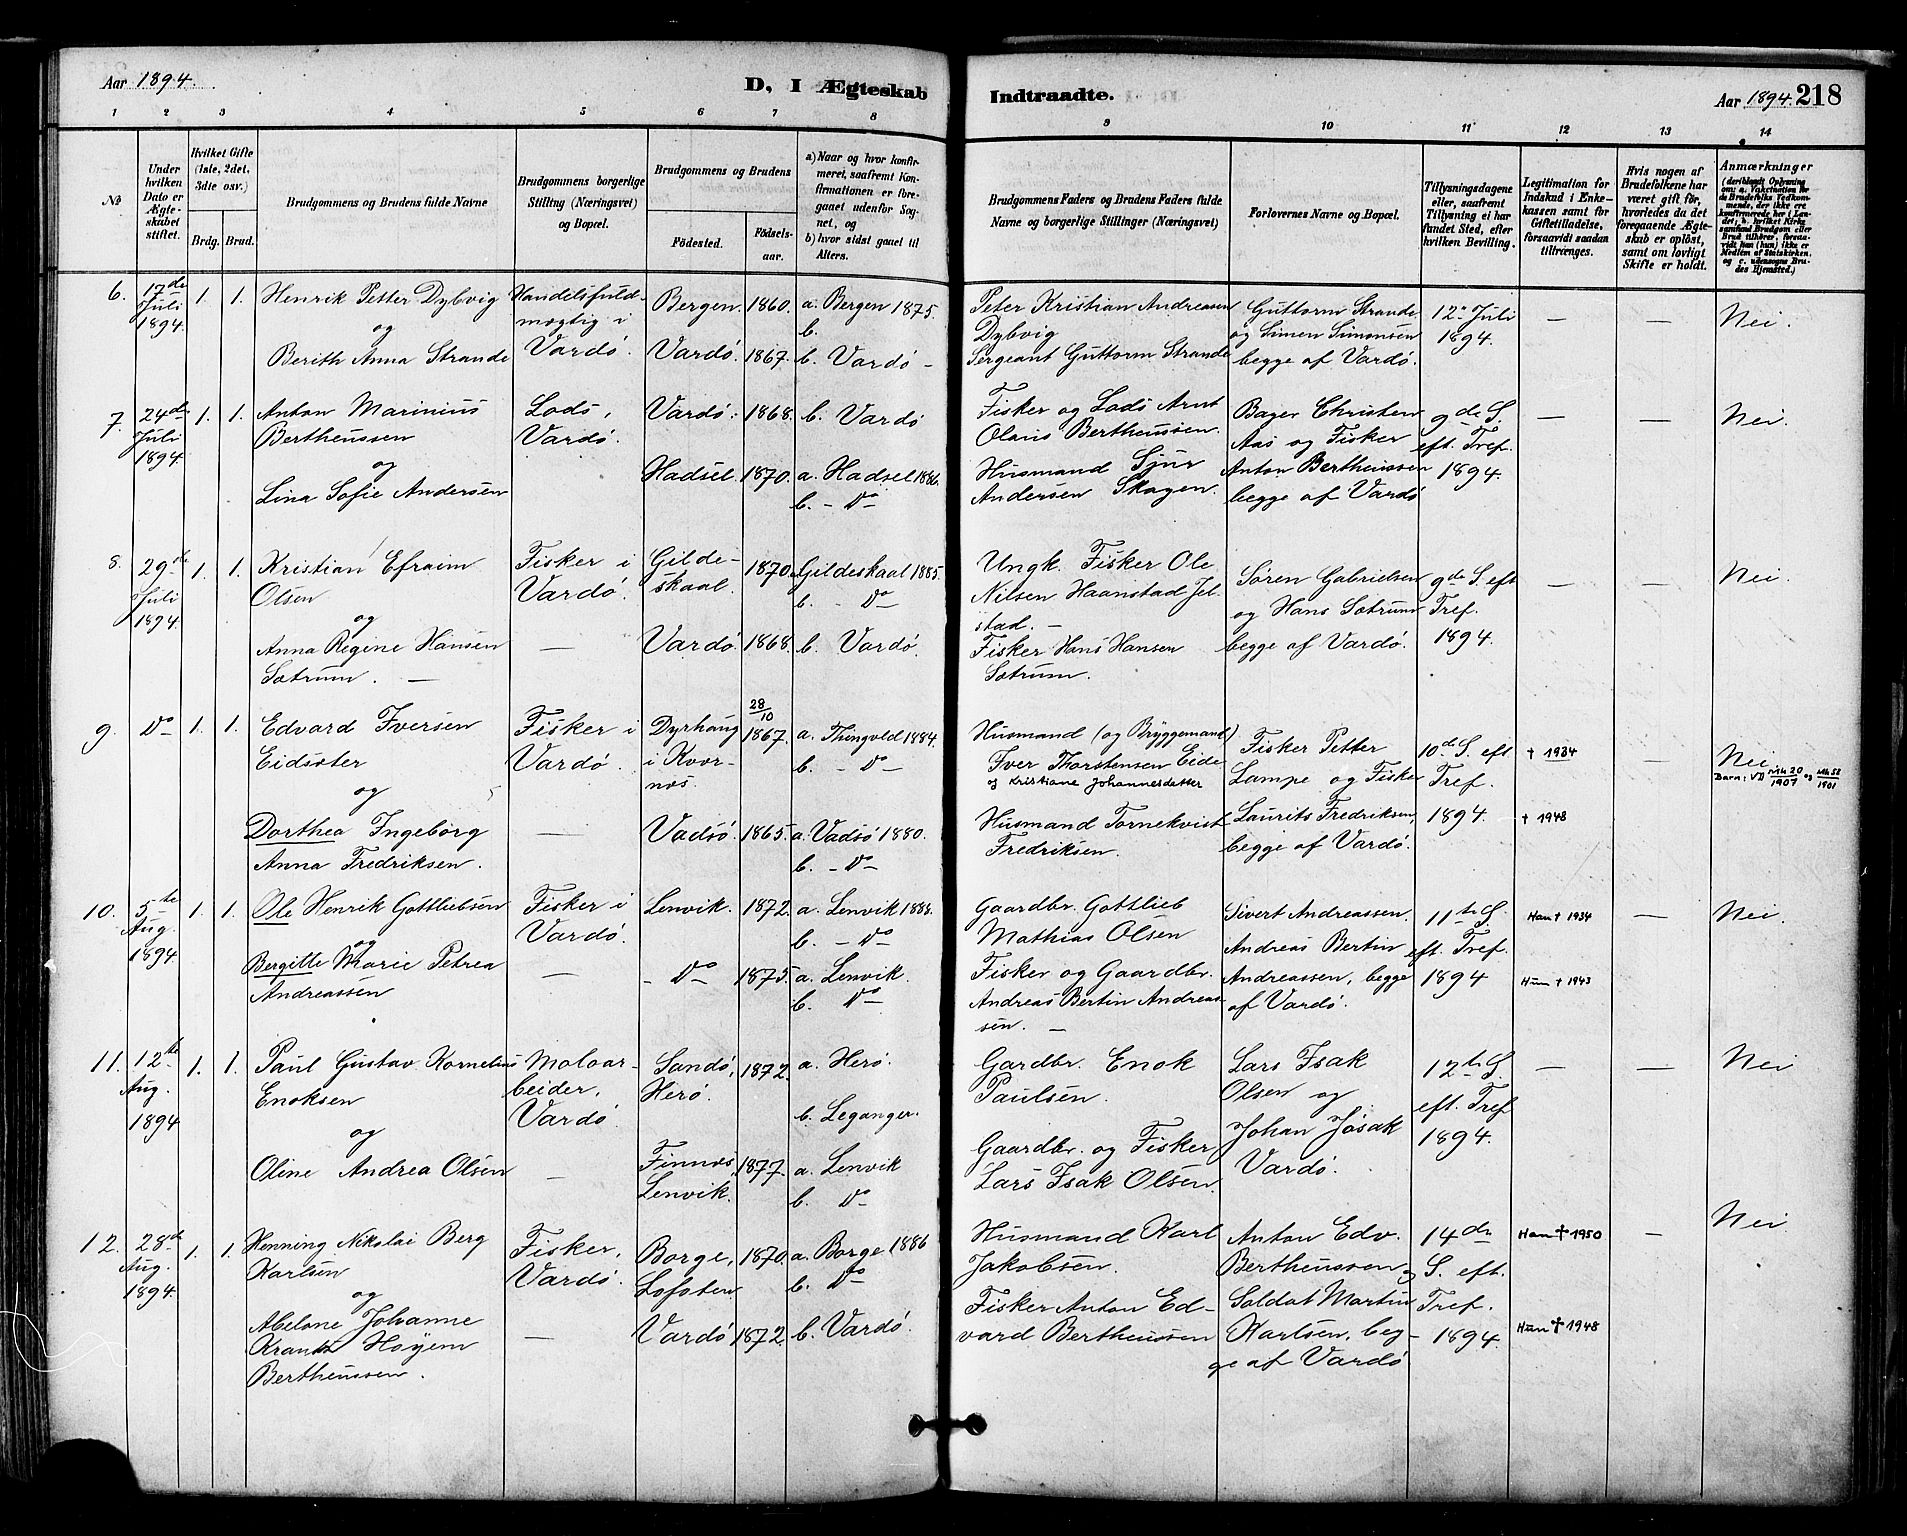 Aar 1894.
D, I Ægteskab
Indtraadte.
Aar 1894. 218
1 2 3 4 5 6 7 8 9 10 11 12 13 14
№
Under hvilken Dato er Ægteskabet stiftet.
Hvilket Gifte (1ste, 2det, 3die osv.)
Brdg. Brud.
Brudgommens og Brudens fulde Navne
Brudgommens borgerlige Stilling (Næringsvei) og Bopæl.
Brudgommens og Brudens
Fødested. Fødselsaar.
a) Naar og hvor konfirmeret, saafremt Konfirmationen er foregaaet udenfor Sognet, og
b) hvor sidst gaaet til Alters.
Brudgommens Faders og Brudens Faders fulde Navne og borgerlige Stillinger (Næringsvei)
Forlovernes Navne og Bopæl.
Tillysningsdagene eller, saafremt Tillysning ei har fundet Sted, efter hvilken Bevilling.
Legitimation for Indskud i Enkekassen samt for Giftetilladelse, forsaavidt saadan tiltrænges.
Hvis nogen af Brudefolkene har været gift før, hvorledes da det foregaaende Ægteskab er opløst, samt om lovligt Skifte er holdt.
Anmærkninger (deriblandt Oplysning om: a. Vakcination for de Brudefolks Vedkommende, der ikke ere konfirmerede her i Landet; b. hvilket Kirkesamfund Brudgom eller Brud tilhører, forsaavidt han (hun) ikke er Medlem af Statskirken, og c. udensogns Brudes Hjemsted.)
6. 17de Juli 1894. 1. 1. Henrik Petter Dybvig
og
Berith Anna Strande
Handelsfuldmægtig i Vardø.
Bergen. 1860. a. Bergen 1875.
b.
Vardø. 1867. b. Vardø –
Peter Kristian Andreasen Dybvig
Sergeant Guttorm Strande
Guttorm Strande og Simen Simonsen begge af Vardø.
12te Juli 1894. — — Nei.
7. 24de Juli 1894. 1. 1. Anton Marinius Bertheussen
og
Lina Sofie Andersen
Lods, Vardø.
Vardø. 1868. b. Vardø
Hadsel. 1870. a. Hadsel 1886.
b. – Do
Fisker og Lods Arnt Olaus Bertheussen.
Husmand Sjur Andersen Skagen.
Bager Christen Aas og Fisker Anton Bertheussen begge af Vardø
9de S. eft. Tref. 1894. — — Nei.
8. 29de Juli 1894. 1. 1. Kristian Efraim Olsen
og
Anna Regine Hansen Sætrum. —
Fisker i Vardø.
—
Gildeskaal. 1870. a. Gildeskaal 1885.
b. – Do –
Vardø. 1868. b. Vardø.
Ungk. Fisker Ole Nilsen Haanstad Jelstad. –
Fisker Hans Hansen Sætrum.
Søren Gabrielsen og Hans Sætrum begge af Vardø.
9de S. eft Tref. 1894. — — Nei.
9. Do 1. 1. Edvard Iversen Eidsæter
og
Dorthea Ingeborg Anna Fredriksen.
Fisker i Vardø.
—
Dyrhaug i Kvernes. 28/10 1867. a. Thingvold 1884.
b. – Do –
Vadsø. 1865. a. Vadsø 1880.
b. – Do –
Husmand (og Bryggemand) Iver Thorstensen Eide
og Kristiane Johannesdatter
Husmand Tornekvist Fredriksen.
Fisker Petter Lampe og Fisker Laurits Fredriksen, begge af Vardø.
10de S. eft Tref. 1894. † 1934
† 1948
— Nei
Barn: VD 20/1907 og 58/1901
10. 5te Aug. 1894. 1. 1. Ole Henrik Gottliebsen
og
Bergitte Marie Petrea Andreassen
Fisker i Vardø.
—
Lenvik. 1872. a. Lenvik 1888.
b. – Do –
– Do – 1875. a. Lenvik.
b. Do –
Gaardbr. Gottlieb Mathias Olsen
Fisker og Gaardbr. Andreas Bertin Andreassen. —
Sivert Andreassen. Andreas Bertin Andreassen, begge af Vardø.
11te S. eft. Tref. 1894 Han † 1934
Hun † 1943
— Nei.
11. 12te Aug. 1894 1. 1. Paul Gustav Kornelius Enoksen
og
Oline Andrea Olsen
Moloarbeider, Vardø.
—
Sandø, Herø. 1872. a. Herø.
b. Leganger.
Finnæs, Lenvik. 1877. a. Lenvik
b. Do
Gardbr. Enok Paulsen.
Gaardbr. og Fisker, Lars Isak Olsen.
Lars Isak Olsen og Johan Josak Vardø.
12te S. eft. Tref 1894. — — Nei
12. 28de Aug. 1894. 1. 1. Henning Nikolai Berg Karlsen
og
Abelone Johanne Krantz Høyem Bertheussen.
Fisker, Vardø.
—
Borge, Lofoten 1870. a. Borge 1886
b. Do
Vardø 1872. b. Vardø.
Husmand Karl Jakobsen.
Fisker Anton Edvard Bertheussen
Anton Edv. Bertheussen og Soldat Martin Karlsen, begge af Vardø
14de S. eft. Tref. 1894. Han † 1950
Hun † 1948
— Nei